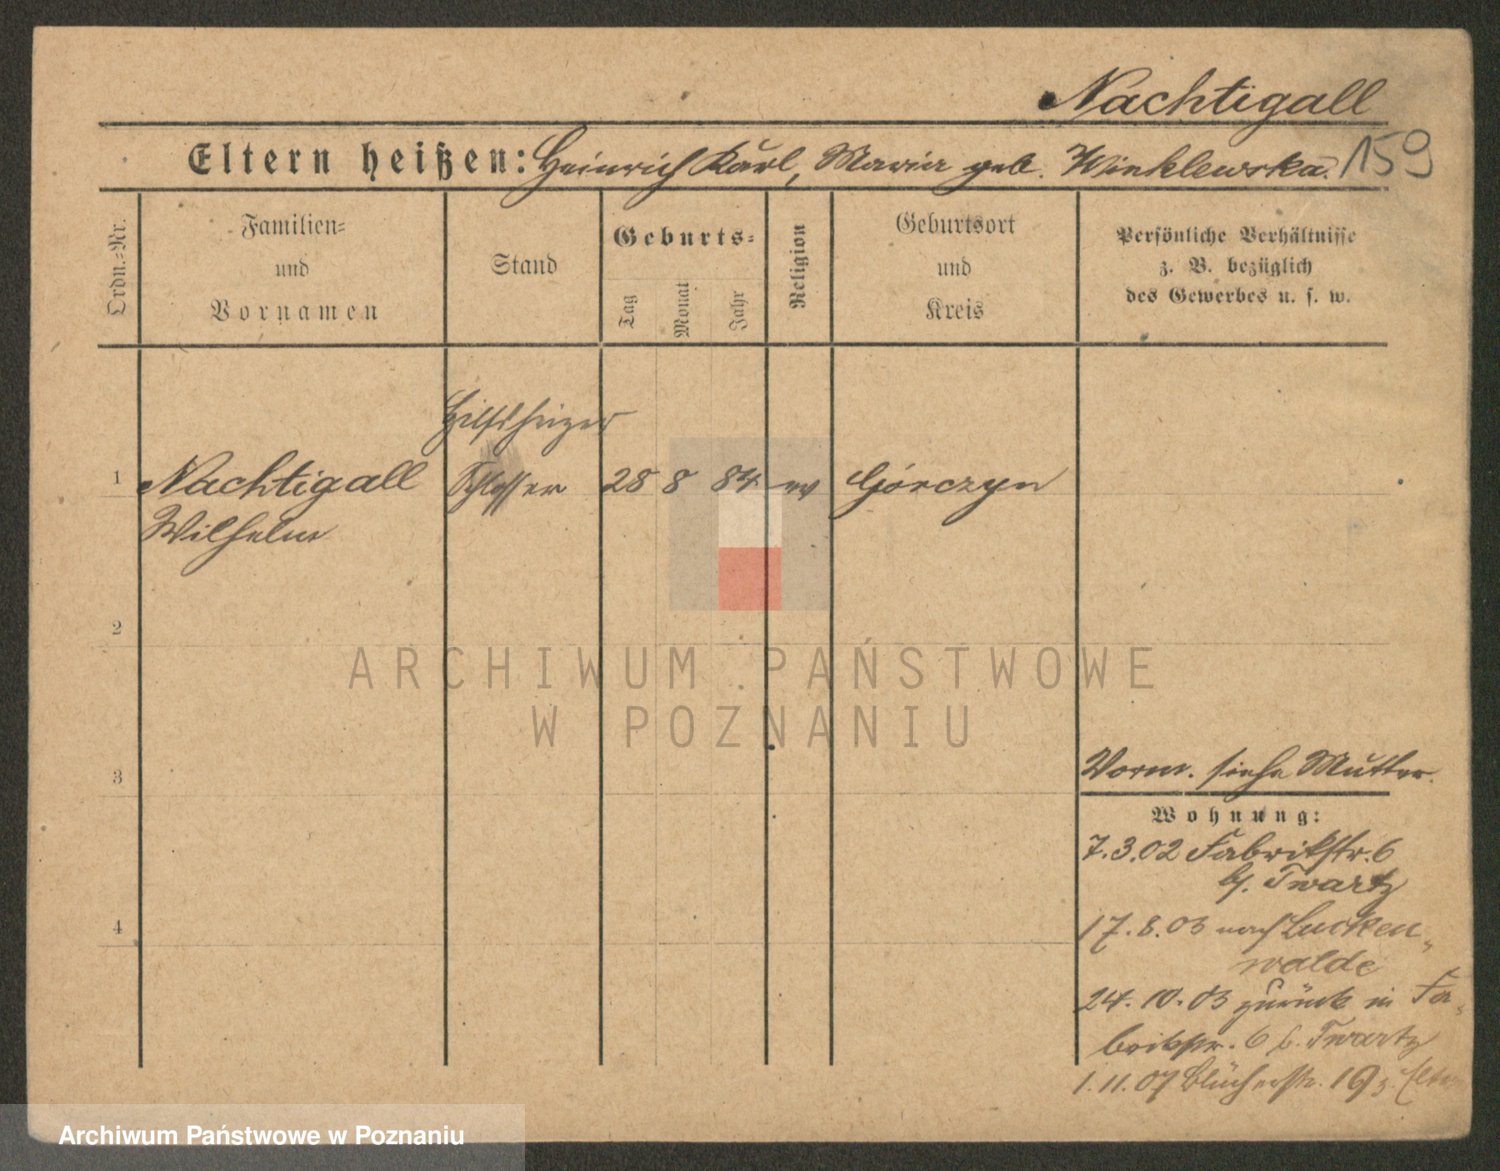 Nachtigall
Eltern heißen: Heinrich Karl, Maria geb. Winklewska. 159
Ordn.-Nr.
Familien-
und
Vornamen
Stand
Geburts-
Tag
Monat
Jahr
Religion
Geburtsort
und
Kreis
Persönliche Verhältnisse
z. B. bezüglich
des Gewerbes u. s. w.
Hilfsheizer
1 Nachtigall Schlosser 28 8 84 ev Górczyn
Wilhelm
2
ARCHIWUM PAŃSTWOWE
W POZNANIU
3
Vorm. siehe Mutter.
Wohnung:
7.3.02 Fabrikstr. 6
b/. Twartz
4
17.8.03 nach Lucken-
walde
24.10.03 zurück in Fa-
brikstr. 6 b. Twartz
1.11.07 Blücherstr. 19 z. Eltern
Archiwum Państwowe w Poznaniu